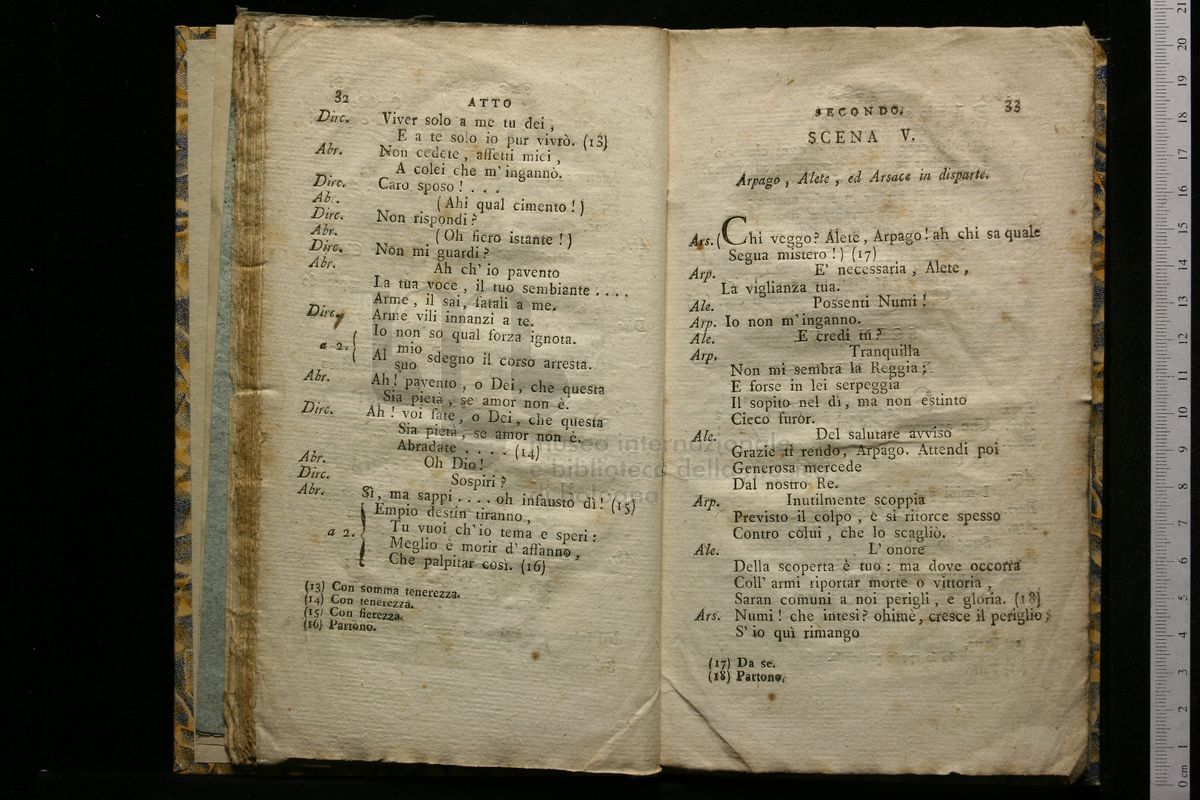 32
ATTO
Dirc. Viver solo a me tu dei,
E a te solo io pur vivrò. (13)
Abr. Non cedete, affetti miei,
A colei che m'ingannò.
Dirc. Caro sposo! . . .
Ab. (Ahi qual cimento!)
Dirc. Non rispondi?
Abr. (Oh fiero istante!)
Dirc. Non mi guardi?
Abr. Ah ch'io pavento
La tua voce, il tuo sembiante . . . .
Arme, il sai, fatali a me.
Dirc. Arme vili innanzi a te.
a 2. { Io non so qual forza ignota.
Al mio
suo sdegno il corso arresta.
Abr. Ah! pavento, o Dei, che questa
Sia pietà, se amor non è.
Dirc. Ah! voi fate, o Dei, che questa
Sia pietà, se amor non è.
Abradate . . . . (14)
Abr. Oh Dio!
Dirc. Sospiri?
Abr. Sì, ma sappi . . . . oh infausto dì! (15)
a 2. { Empio destin tiranno,
Tu vuoi ch'io tema e speri:
Meglio è morir d'affanno,
Che palpitar così. (16)
(13) Con somma tenerezza.
(14) Con tenerezza.
(15) Con fierezza.
(16) Partono.
SECONDO. 33
SCENA V.
Arpago, Alete, ed Arsace in disparte.
Ars. (Chi veggo? Alete, Arpago! ah chi sa quale
Segua mistero!) (17)
Arp. E' necessaria, Alete,
La viglianza tua.
Ale. Possenti Numi!
Arp. Io non m'inganno.
Ale. E credi tu?
Arp. Tranquilla
Non mi sembra la Reggia;
E forse in lei serpeggia
Il sopito nel dì, ma non estinto
Cieco furòr.
Ale. Del salutare avviso
Grazie ti rendo, Arpago. Attendi poi
Generosa mercede
Dal nostro Re.
Arp. Inutilmente scoppia
Previsto il colpo, e si ritorce spesso
Contro colui, che lo scagliò.
Ale. L'onore
Della scoperta è tuo: ma dove occorra
Coll'armi riportar morte o vittoria,
Saran comuni a noi perigli, e gloria. (18)
Ars. Numi! che intesi? ohimè, cresce il periglio;
S'io quì rimango
(17) Da se.
(18) Partono.
museo internazionale
e biblioteca della
di bologna
0 cm 1 2 3 4 5 6 7 8 9 10 11 12 13 14 15 16 17 18 19 20 21